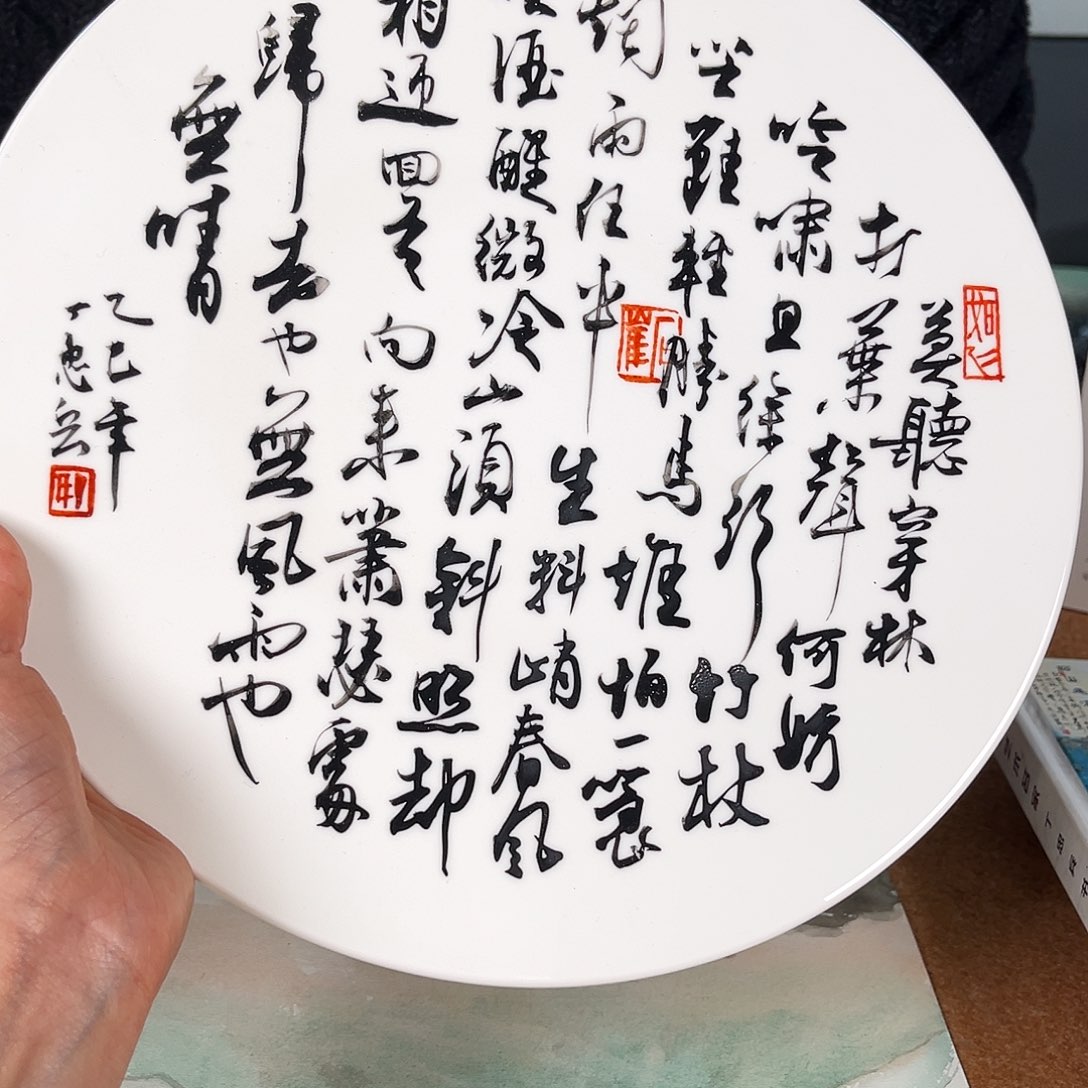 莫聽穿林
打葉聲何妨
吟嘯且徐行竹杖
芒鞋輕勝馬誰怕一蓑
雨任平生料峭春風
酒醒微冷山頭斜照却
相迎回首向来蕭瑟處
歸去也無風雨也
無晴
乙巳年
丁忠